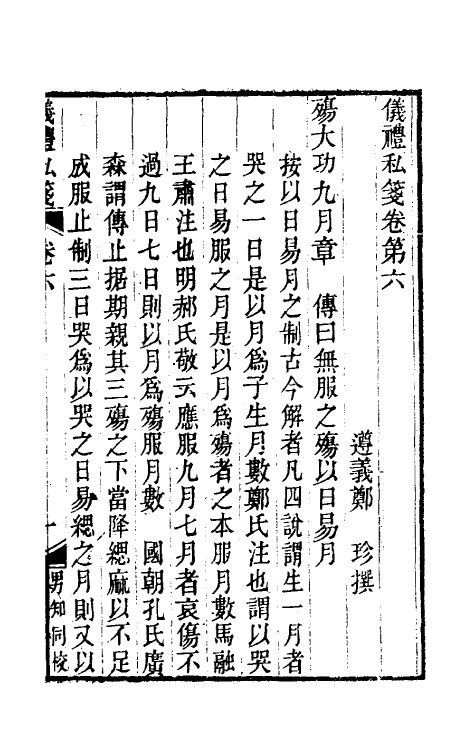 儀禮私箋卷第六
遵義鄭　珍撰
殤大功九月章　傳曰無服之殤以日易月
按以日易月之制古今解者凡四說謂生一月者
哭之一日是以月爲子生月數鄭氏注也謂以哭
之日易服之月是以月爲殤者之本服月數馬融
王肅注也明郝氏敬云應服九月七月者哀傷不
過九日七日則以月爲殤服月數　國朝孔氏廣
森謂傳止据期親其三殤之下當降緦麻以不足
成服止制三日哭爲以哭之日易緦之月則又以
儀禮私箋　卷六　一　男知同校